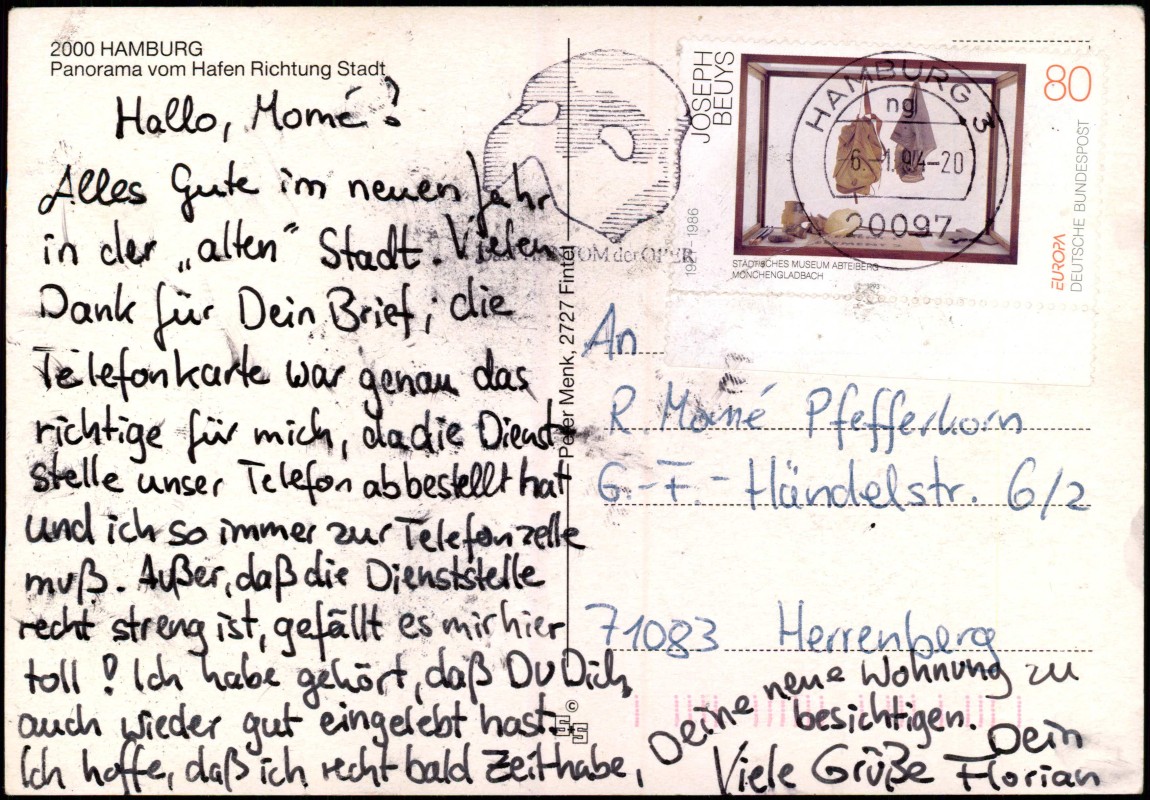 2000 HAMBURG
Panorama vom Hafen Richtung Stadt
Hallo, Momé!
Alles Gute im neuen Jahr
in der „alten" Stadt. Vielen
Dank für Dein Brief; die
Telefonkarte war genau das
richtige für mich, da die Dienst-
stelle unser Telefon abbestellt hat
und ich so immer zur Telefonzelle
muß. Außer, daß die Dienststelle
recht streng ist, gefällt es mir hier
toll! Ich habe gehört, daß Du Dich
auch wieder gut eingelebt hast.
Ich hoffe, daß ich recht bald Zeit habe,
Deine neue Wohnung zu
besichtigen.
Viele Grüße Dein
Florian
Peter Menk, 27727 Fintel
©
OM der OPER
JOSEPH
BEUYS
1986
80
HAMBURG 3
ng
6.-1.94-20
20097
STÄDTISCHES MUSEUM ABTEIBERG
MÖNCHENGLADBACH
EUROPA
DEUTSCHE BUNDESPOST
An
R. Momé Pfefferkorn
G.-F.-Händelstr. 6/2
71083 Herrenberg